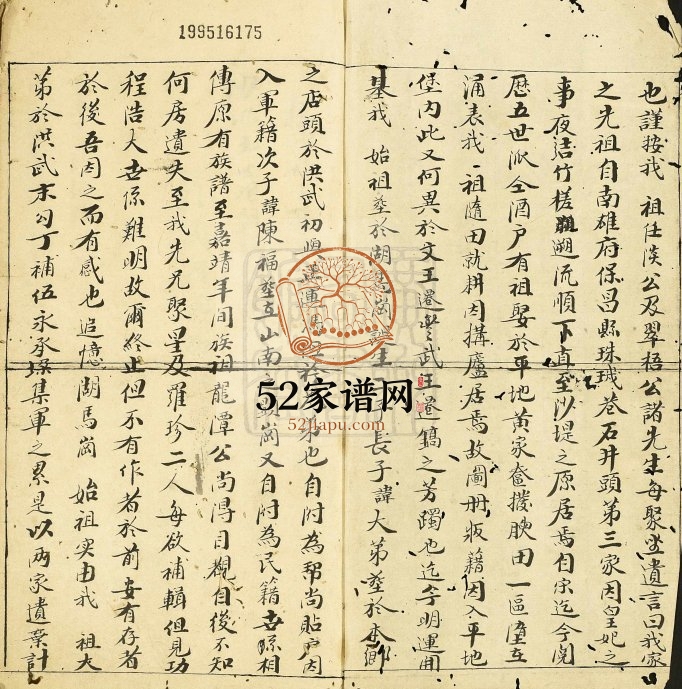 199516175
也謹按我 祖任漢公及翠梧公諸先生每聚坐遺言曰我家
之先祖自南雄府保昌縣珠玑巷石井頭第三家因皇妃之
事夜結竹槎 遡流順下直至沙堤之原居焉自宗迄今閱
歷五世派仝酒户有祖娶於平地黃家奩撥腴田一區 在
涌表我 祖隨田就耕因搆廬居焉故圖册版籍因入平地
堡内此又何異於文王遷豐武王遷鎬之芳躅也迄今明運用
基我 始祖塟於湖 崗 長子諱大第塟於本鄉
之店頭於洪武初 運 弟也自附為幇尚貼户因
入軍籍次子諱陳福塟在山南 崗又自附為民籍世孫相
傳原有族譜至嘉靖年間族祖龍潭公尚得目觀自後不知
何居遺失至我先兄聚星及羅珍二人每欲補輯但見功
程浩大世係難明故爾終止但不有作者於前安有存者
於後吾因之而有感也追憶湖馬崗 始祖突由我 祖大
第於洪武末勾丁補伍永承垜集軍之累是以两家遺業計
52家谱网
52jiapu.com